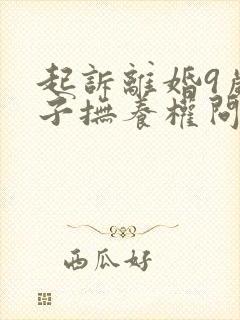 起訴離婚9歲
子撫養權問
西瓜好